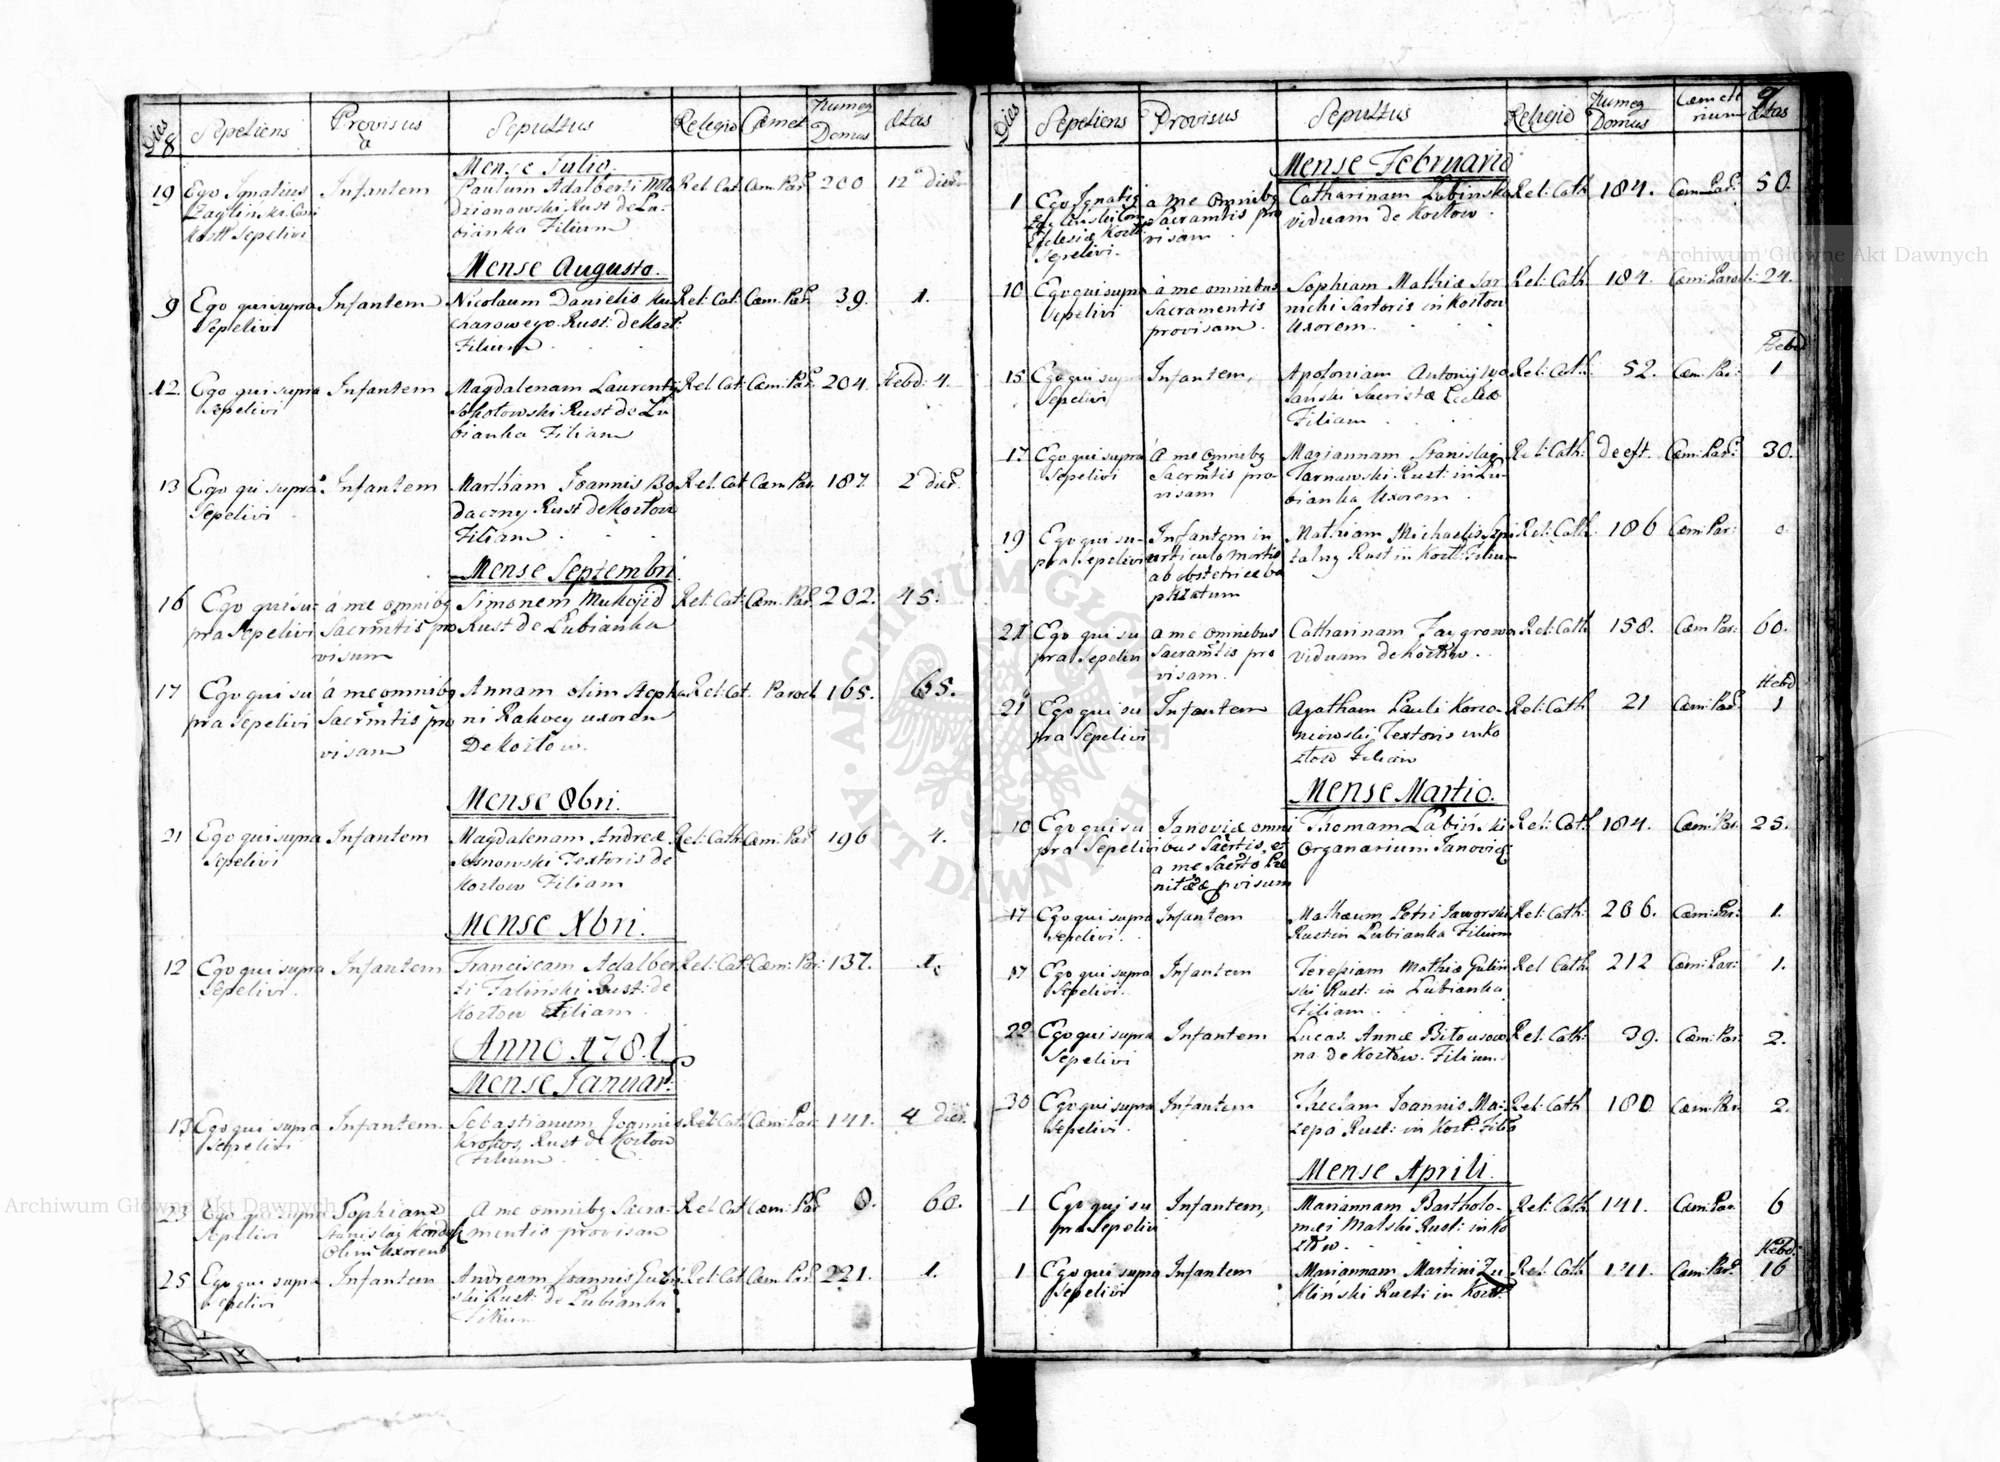 Dies
8
Sepeliens
Provisus
a
Sepultus
Religio
Cæmet
Numeq
Domus
Ætas
Mense Julio.
19
Ego Ignatius
Sepelivi
Infantem
Paulum Adalberti
dzianowski Rust de Lu-
bianka Filium
Rel: Cat:
Cæm: Par:
200
12 dier
Mense Augusto.
9
Ego qui supra
Sepelivi
Infantem
Nicolaum Danielis Ku
charowego Rust: de Kozt:
Filium
Rel: Cat:
Cæm: Par:
39.
1.
12.
Ego qui supra
Sepelivi
Infantem
Magdalenam Laurentij
Sokołowski Rust de Lu
bianka Filiam
Rel: Cat:
Cæm: Par:
204.
Hebd: 4.
13
Ego qui supra
Sepelivi
Infantem
Martham Joannis Bo
daczny Rust de Koztow
Filiam
Rel: Cat
Cæm: Par:
187
2 dier.
Mense Septembri.
16
Ego qui su-
pra Sepelivi
á me omnibq
Sacrmtis pro
visum
Simonem Mukojid
Rust de Lubianka
Rel: Cat:
Cæm: Par:
202.
45.
17
Ego qui su
pra Sepelivi
á me omnibq
Sacrmtis pro
visam
Annam olim Stepha
ni Rakocy uxorem
de Koztow.
Rel: Cat.
Paroch
165.
65.
Mense 8bri.
21
Ego qui supra
Sepelivi
Infantem
Magdalenam Andreæ
Sosnowski Textoris de
Koztow Filiam
Rel: Cath:
Cæm: Par:
196
4.
Mense Xbri.
12
Ego qui supra
Sepelivi.
Infantem
Franciscam Adalber
ti Falinski Rust: de
Koztow Filiam
Rel: Cat:
Cæm: Par:
137.
1.
Anno 1781.
Mense Januar:
13
Ego qui supra
Sepelivi
Infantem
Sebastianum Joannis
Krokos, Rust de Koztow
Filium
Rel: Cat:
Cæm: Par:
141.
4 dier
23
Ego qui supra
Sepelivi
Sophiam
Stanislaj
Olim Uxorem
A me omnibq Sacra-
mentis provisam
Rel: Cat
Cæm: Par
0.
60.
25
Ego qui supra
Sepelivi
Infantem
Andream Joannis Guliń
ski Rust: de Lubianka
Filium
Rel: Cat
Cæm: Par:
221.
1.
Dies
Sepeliens
Provisus
Sepultus
Religio
Numeq
Domus
Cæmete
rium
9
Ætas
Mense Februario
1
Ego Ignatiq
Ecclesiæ Kozt:
Sepelivi.
a me omnibq
Sacramtis pro
visam
Catharinam Lubinska
viduam de Koztow.
Rel: Cath
184.
Cæm: Par:
50.
10
Ego qui supra
Sepelivi
á me omnibus
Sacramentis
provisam.
Sophiam Mathiæ Sar
nicki Sartoris in Koztow
Uxorem.
Rel: Cath
184.
Cæm: Paroch:
24.
15
Ego qui supra
Sepelivi
Infantem,
Apoloniam Antonij Wo
lanski Sacristæ Eccliæ
Filiam
Rel: Cath:
52.
Cæm: Par:
Hebd
1
17
Ego qui supra
Sepelivi
á me omnibq
Sacrmtis pro-
visam
Mariannam Stanislaj
Tarnawski Rust: in Lu-
bianka Uxorem
Rel: Cath:
deest.
Cæm: Par:
30.
19
Ego qui su-
pra Sepelivi
Infantem in
articulo mortis
ab obstetrice ba
ptizatum
Mathiam Michaelis Szpi
talny Rust in Kozt: Filium
Rel: Cath:
186
Cæm: Par:
0
21
Ego qui su
pra Sepelivi
a me omnibus
Sacramtis pro
visam.
Catharinam Jaygrowa
viduam de Koztow.
Rel: Cath
158.
Cæm: Par:
60.
21
Ego qui su
pra Sepelivi
Infantem
Agatham Pauli Korco-
niewski Textoris in Ko
ztow Filiam
Rel: Cath
21
Cæm: Par:
Hebd
1
Mense Martio.
10
Ego qui su
pra Sepelivi
Janoviæ omni
bus Sacrtis, et
a me Sacrto Pæ
nitæ pvisum
Thomam Labiński
Organarium Janovieq
Rel: Cath
184.
Cæm: Par.
25.
17
Ego qui supra
Sepelivi.
Infantem
Mathæum Petri Jaworski
Rust in Lubianka Filium
Rel: Cath:
206.
Cæm: Par:
1.
17
Ego qui supra
Sepelivi.
Infantem
Teresiam Mathiæ Gulin
ski Rust: in Lubianka
Filiam
Rel Cath
212
Cæm: Par:
1.
22
Ego qui supra
Sepelivi
Infantem
Lucas Annæ Bitousow
na de Koztow. Filium.
Rel: Cath:
39.
Cæm: Par:
2.
30
Ego qui supra
Sepelivi.
Infantem
Theclam Joannis Ma-
zepa Rust: in Kozt: Filia
Rel: Cath
180
Cæm: Par:
2.
Mense Aprili.
1
Ego qui su
pra Sepelivi
Infantem,
Mariannam Bartholo-
mæi Malski Rust: in Ko
ztow.
Rel: Cath
141.
Cæm: Par.
6
1
Ego qui supra
Sepelivi
Infantem
Mariannam Martini Zu
kliński Rusti in Kozt:
Rel: Cath
141.
Cæm: Par.
Hebd:
16
Archiwum Główne Akt Dawnych
Archiwum Główne Akt Dawnych
ARCHIWUM GŁÓWNE · AKT DAWNYCH ·